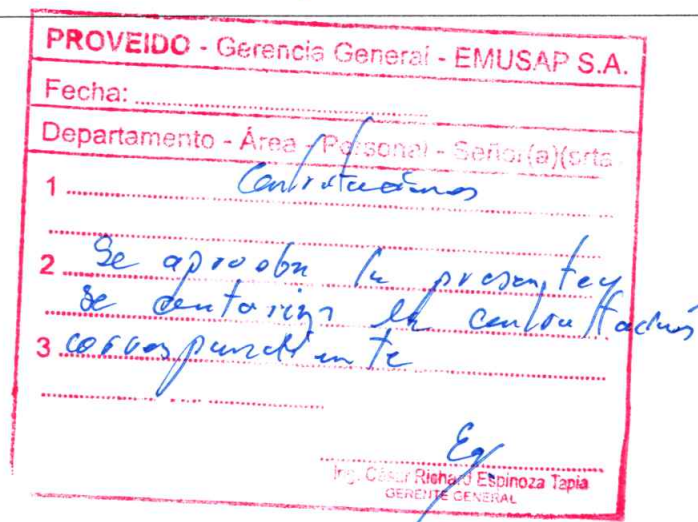 PROVEIDO - Gerencia General - EMUSAP S.A.
Fecha:
Departamento - Área - Personal - Señor(a)(srta
1 Contrataciones
2 Se aprueba la presente y
se autoriza la contratación
3 correspondiente
Ing. César Richard Espinoza Tapia
GERENTE GENERAL